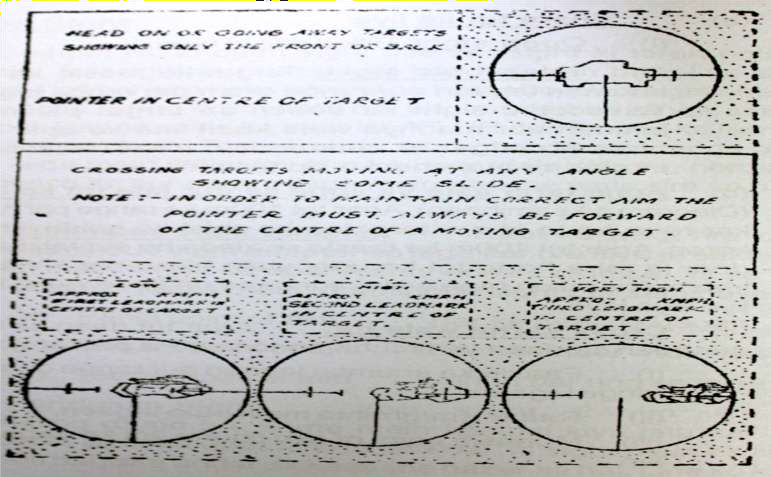 HEAD ON OR GOING AWAY TARGETS
SHOWING ONLY THE FRONT OR BACK
POINTER IN CENTRE OF TARGET
CROSSING TARGETS MOVING AT ANY ANGLE
SHOWING SOME SLIDE.
NOTE :- IN ORDER TO MAINTAIN CORRECT AIM THE
POINTER MUST ALWAYS BE FORWARD
OF THE CENTRE OF A MOVING TARGET.
LOW
APPROX KMPH
FIRST LEADMARK IN
CENTRE OF LARGET
HIGH
APPROX KMPH
SECOND LEADMARK
IN CENTRE OF
TARGET.
VERY HIGH
APPROX: KMPH
THIRD LEADMARK
IN CENTRE OF
TARGET